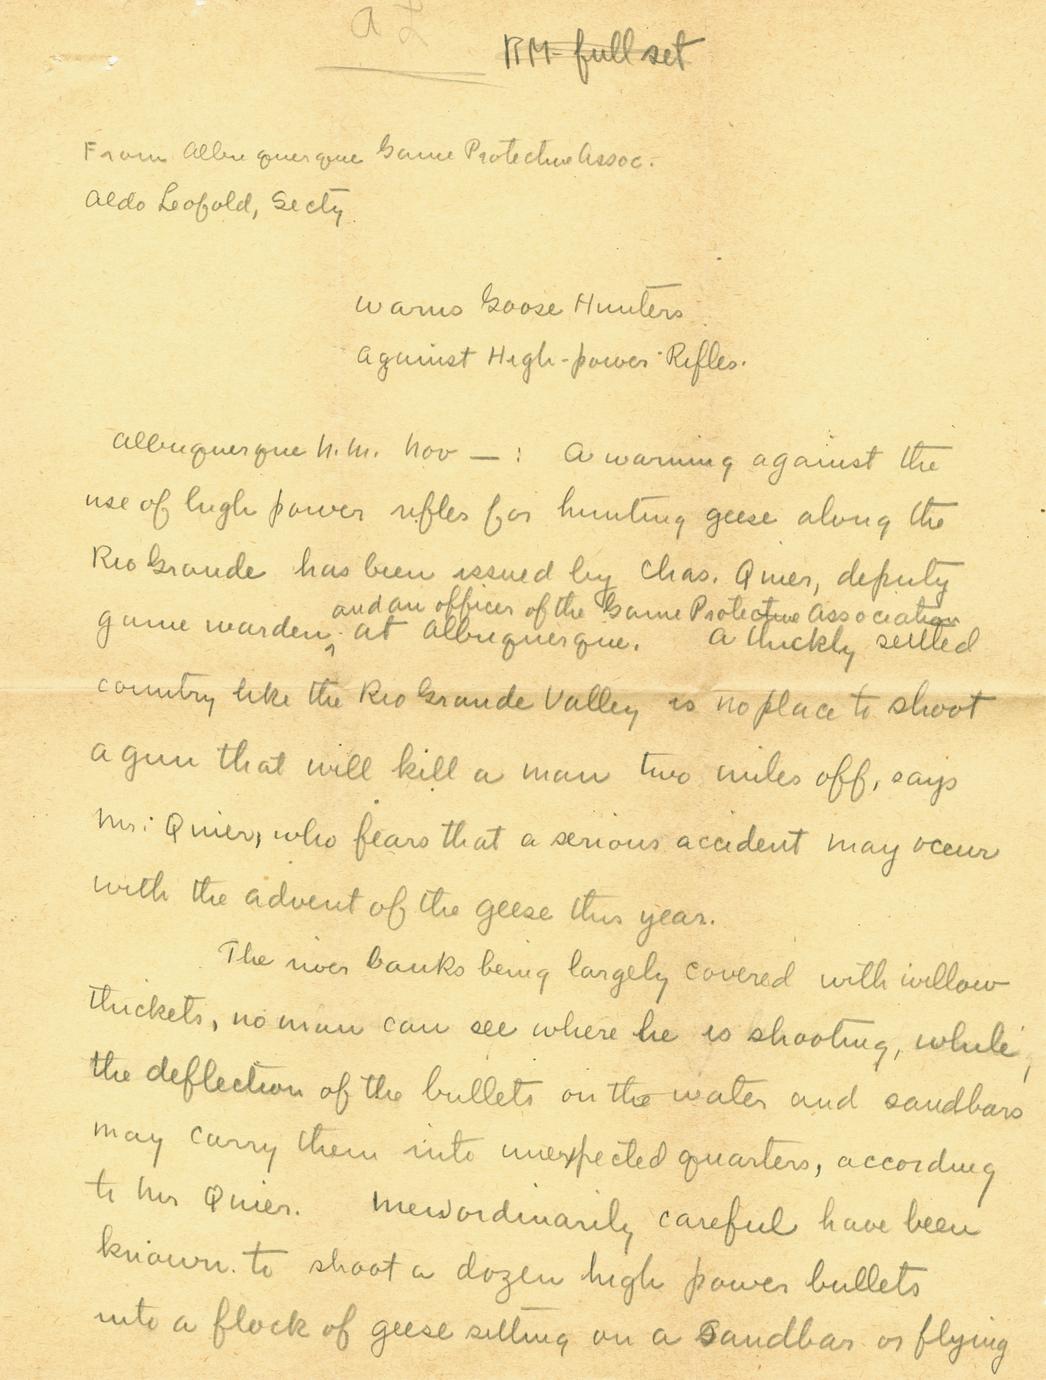 RM- full set
From Albuquerque Game Protective Assoc.
Aldo Leopold, Secty
Warns Goose Hunters
against High-power Rifles.
Albuquerque N.M. Nov — : A warning against the
use of high power rifles for hunting geese along the
Rio Grande has been issued by Chas. Quier, deputy
and an officer of the Game Protective Association
game warden, at Albuquerque. A thickly settled
country like the Rio Grande Valley is no place to shoot
a gun that will kill a man two miles off, says
Mr. Quier, who fears that a serious accident may occur
with the advent of the geese this year.
The river banks being largely covered with willow
thickets, no man can see where he is shooting, while,
the deflection of the bullets on the water and sandbars
may carry them into unexpected quarters, according
to Mr Quier. Men ordinarily careful have been
known to shoot a dozen high power bullets
into a flock of geese sitting on a sandbar or flying